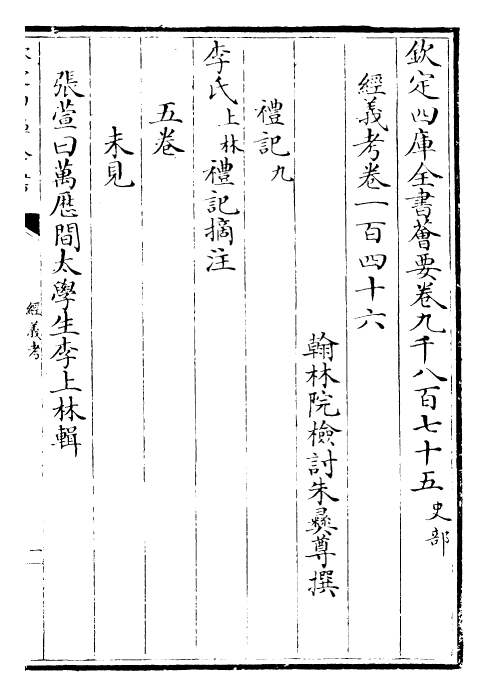 欽定四庫全書薈要卷九千八百七十五 史部
經義考卷一百四十六
翰林院檢討朱彝尊撰
禮記九
李氏上林禮記摘注
五卷
未見
張萱曰萬厯間太學生李上林輯
經義考